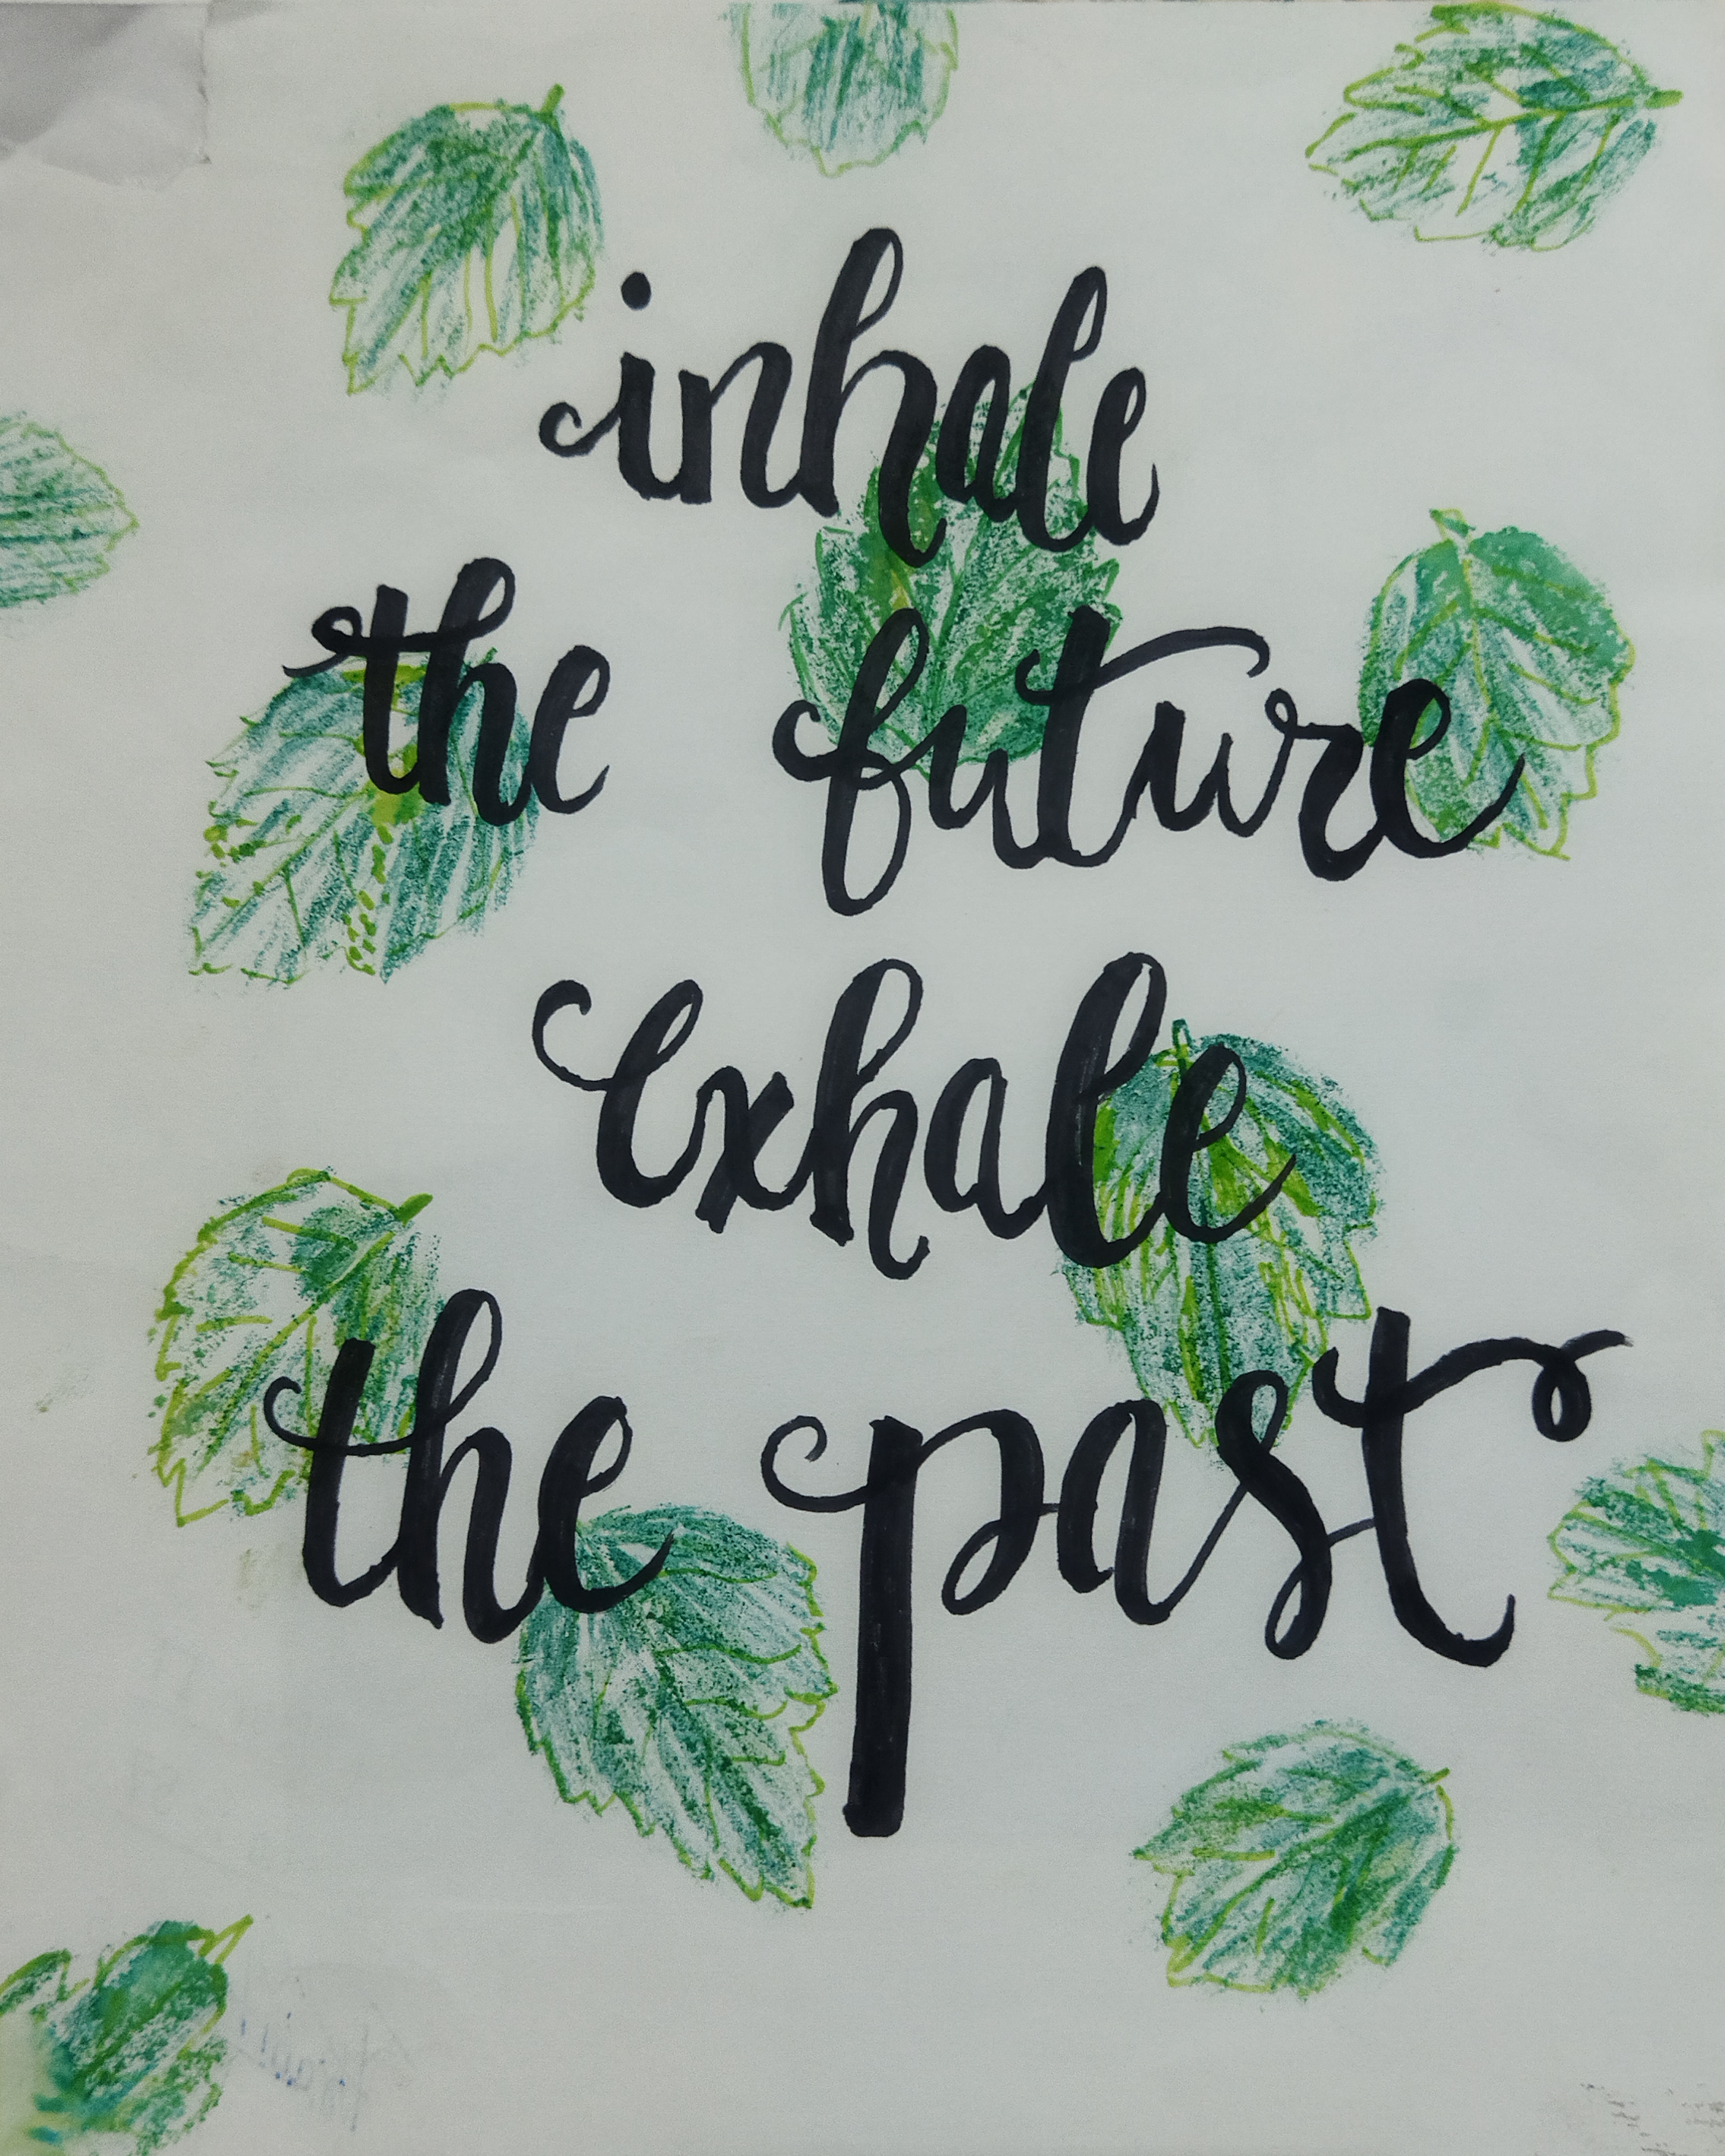 inhale
the future
exhale
the past